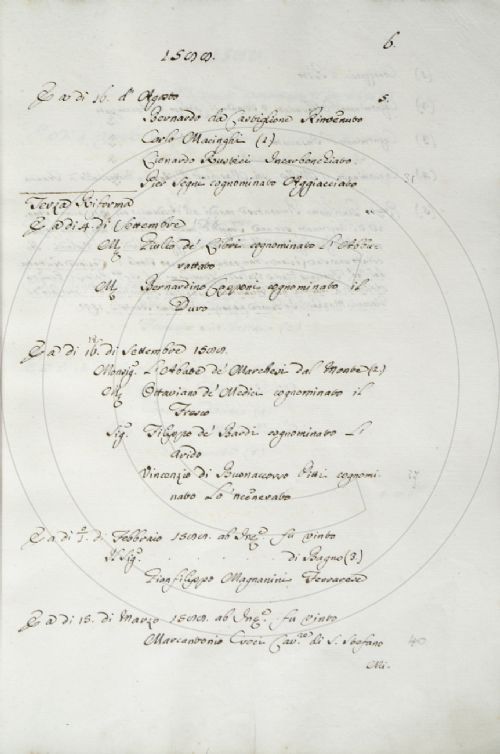 6.
1589.
E a di 16. d'Agosto 5.
Bernardo da Castiglione Rinvenuto
Carlo Macinghi (1)
Lionardo Rustici Incarbonchiato
Pier Segni cognominato Aggiacciato 31
Terza Riforma
E a di 4. di Settembre
Mſ Giulio de' Libri cognominato
rattato
Mſ Bernardino Capponi cognominato il
Duro
E a di 16. di Settembre 1589.
Monsig.r L'Abate de' Marchesi dal Monte (2.)
Mſ Ottaviano de' Medici cognominato il
Fresco
Sig.r Filippo de' Bardi cognominato L'
Arido
Vincenzio di Buonaccorso Pitti cognomi- 37
nato Lo 'ncenerato
E a di 1. di Febbraio 1589. ab Inc.e fu vinto
Il Sig.r . . . . . di Bagno (3.)
Gianfilippo Magnanini Ferrarese
E a di 15. di Marzo 1589. ab Inc.e fu vinto
Marcantonio Cav.re di S. Stefano 40
Mi-